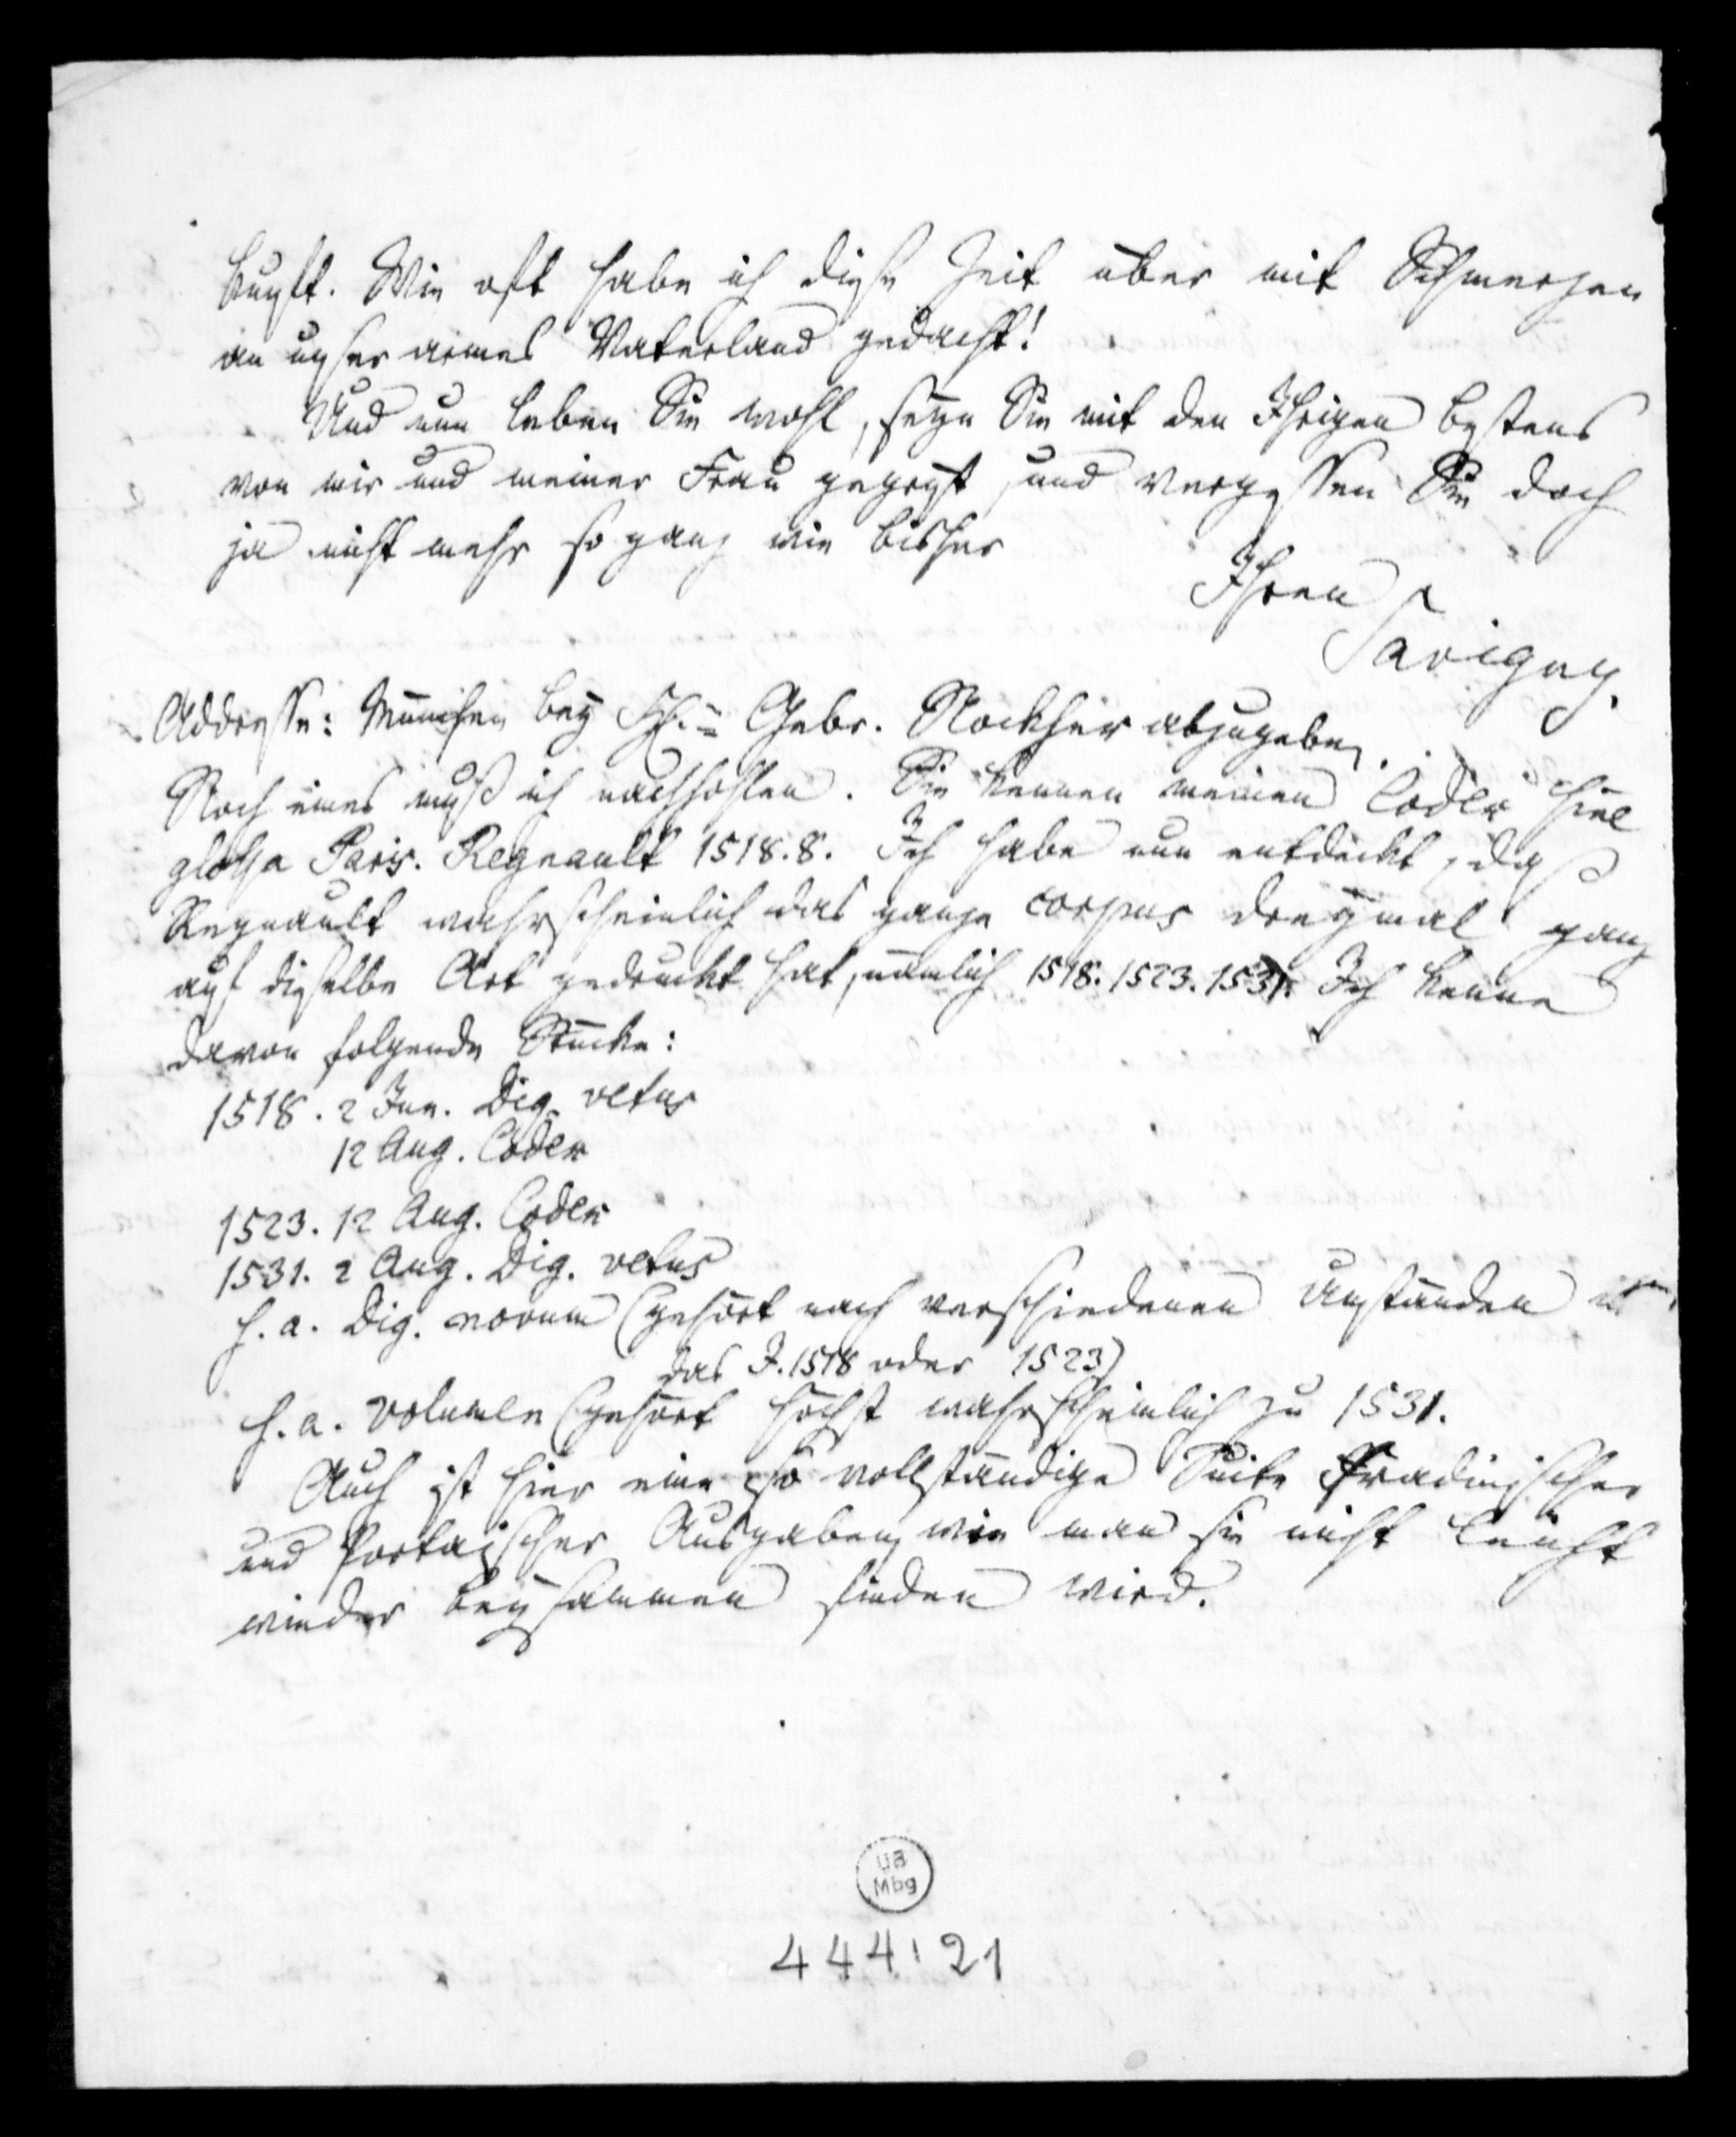 kunft. Wie oft habe ich diese Zeit über mit Schmerzen
an unser armes Vaterland gedacht!
Und nun leben Sie wohl, seyn Sie mit den Ihrigen bestens
von mir und meiner Frau gegrüßt, und vergessen Sie doch
ja nicht mehr so ganz wie bisher
Ihren
Savigny.
Addresse: München bey Gebr. Nockher abzugeben.
Noch eines muß ich nachhohlen. Sie kennen meinen Codex sine
glossa Paris. Regnault 1518.8. Ich habe nun entdeckt, daß
Regnault wahrscheinlich das ganze corpus dreymal ganz
auf dieselbe Art gedruckt hat, nämlich 1518. 1523. 1531. Ich kenne
davon folgende Stücke:
1518. 2 Jun. Dig. vetus
12 Aug. Codex
1523. 12 Aug. Codex
1531. 2 Aug. Dig. vetus
s. a. Dig. novum (gehört nach verschiedenen Umständen in
das J. 1518 oder 1523)
s. a. Volumen (gehört höchst wahrscheinlich zu 1531.
Auch ist hier eine so vollständige Suite Fradinischer
und Portaischer Ausgaben, wie man sie nicht leicht
wieder beysammen finden wird.
UB
Mbg
444:21